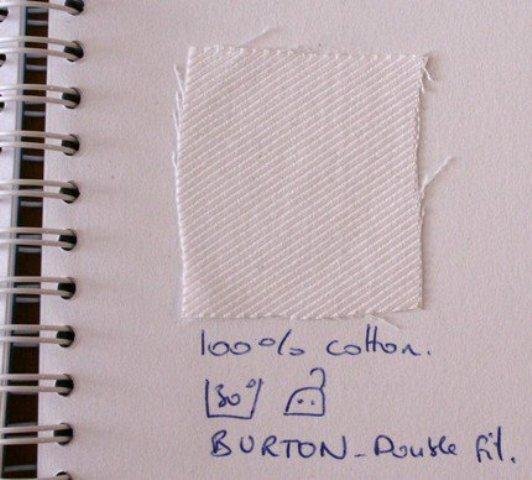 100% cotton.
30°
BURTON - Double fil.